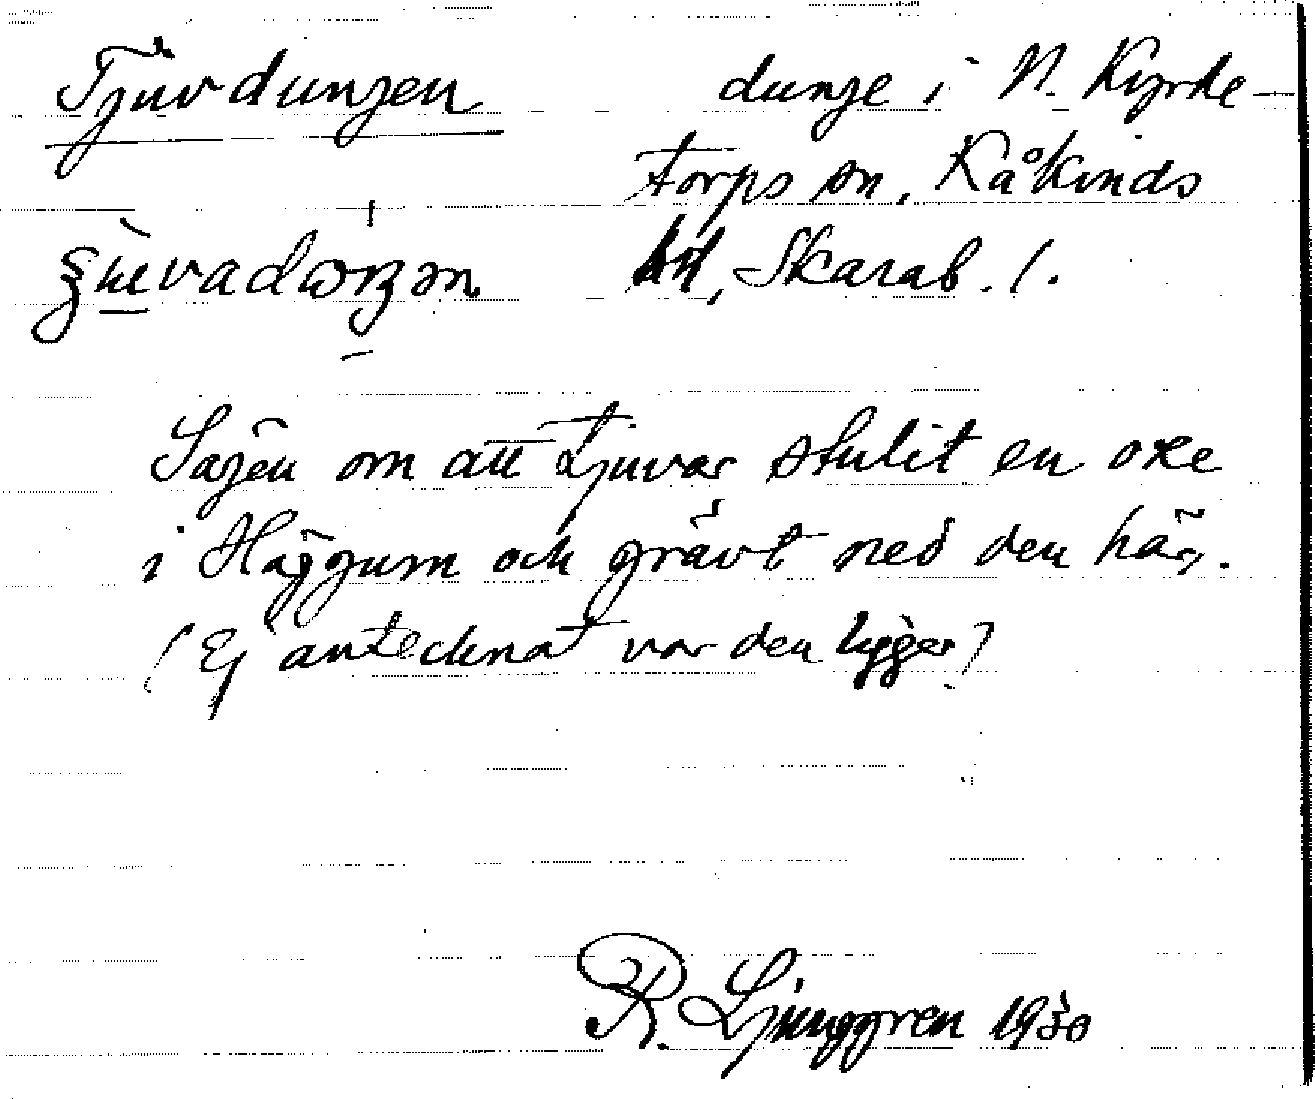 Tjuvdungen dunge i N. Kyrke-
torps sn, Kåkinds
hd, Skarab. l.
Sägen om att tjuvar stulit en oxe
i Häggum och grävt ned den här.
(Ej antecknat var den ligger)
R. Ljunggren 1930